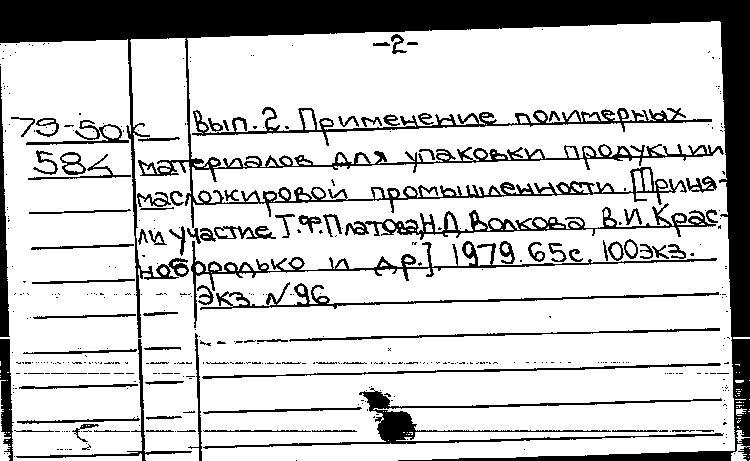 -2-
79-50к Вып. 2. Применение полимерных
584 материалов для упаковки продукции
масложировой промышленности. [Приня-
ли участие Т.Ф.Платова, Н.Д.Волкова, В.И.Крас-
нобородько и др.]. 1979. 65с. 100экз.
Экз. N 96.